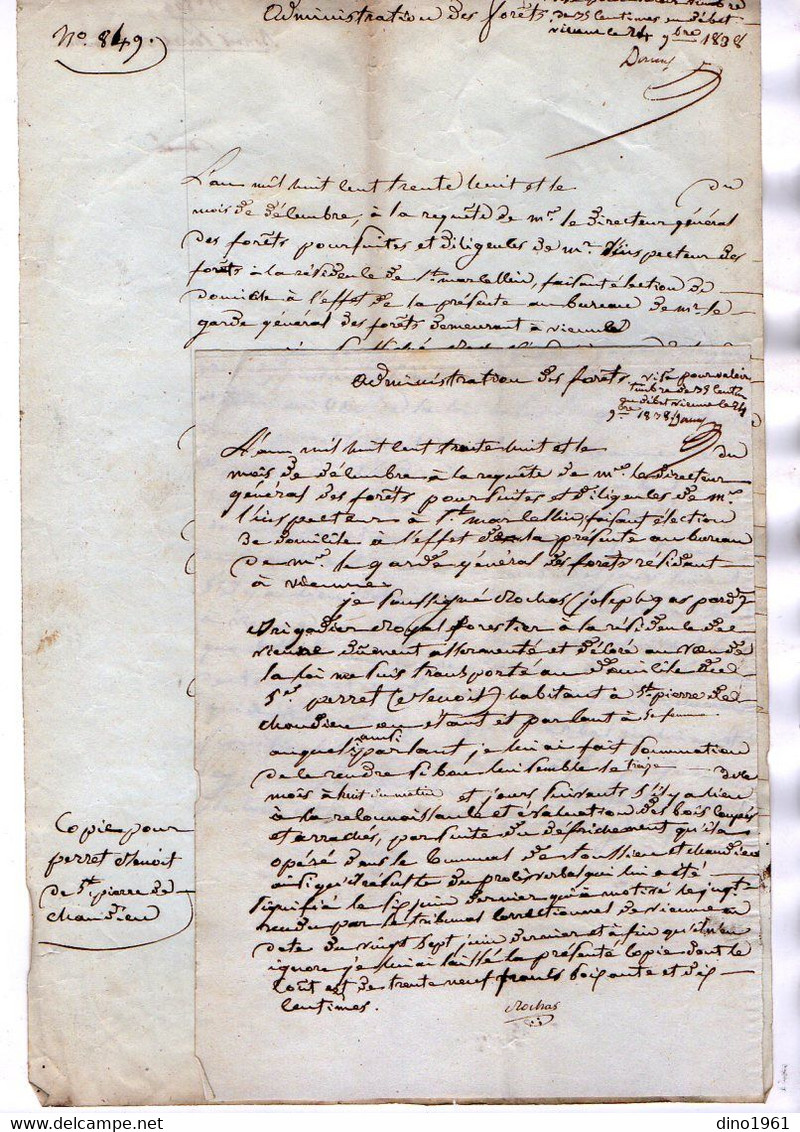 Administration des forêts
de 35 Centimes en débet
vienne le 24 9bre 1838
No. 849.
L'an mil huit cent trente huit et le du
mois de décembre, à la requête de mr. le directeur général
des forêts poursuites et diligences de mr. l'inspecteur des
forêts à la résidence de St. marcellin, faisant élection de
domicile à l'effet de la présente au bureau de mr. le
garde général des forêts demeurant à vienne
Administration des forêts visé pour valoir
timbre de 35 Centim
en débet vienne le 24
9bre 1838
L'an mil huit cent trente huit et le du
mois de décembre à la requête de mr. le Directeur
général des forêts poursuites et diligences de mr.
l'inspecteur à St. marcellin, faisant élection
de domicile à l'effet de la présente au bureau
de mr. le garde général des forêts résidant
à vienne
je soussigné Rochas (joseph gaspard)
Brigadier Royal forestier à la résidence de
vienne dûment assermenté et déclaré au vœu de
la loi me suis transporté au domicile de
Sr. perret (Benoit) habitant à St. pierre de
chandieu en étant et parlant à sa femme
auquel ainsi parlant, je lui ai fait sommation
de se rendre si bon lui semble le treize
mois à huit du matin et jours suivants s'il y a lieu
à la reconnaissance et évaluation des bois coupés
et arrachés, par suite du défrichement qu'il a
opéré dans le Communal de toussieu et chandieu
ainsi qu'il résulte du procès verbal qui lui a été
signifié le six juin dernier qui a motivé le jugt.
rendu par le tribunal correctionnel de vienne en
date du vingt sept juin dernier et à fin qu'il n'en
ignore je lui ai laissé la présente copie dont le
coût est de trente neuf francs soixante et dix
centimes.
Rochas
Copie pour
perret Benoit
de St. pierre de
chandieu
dino1961